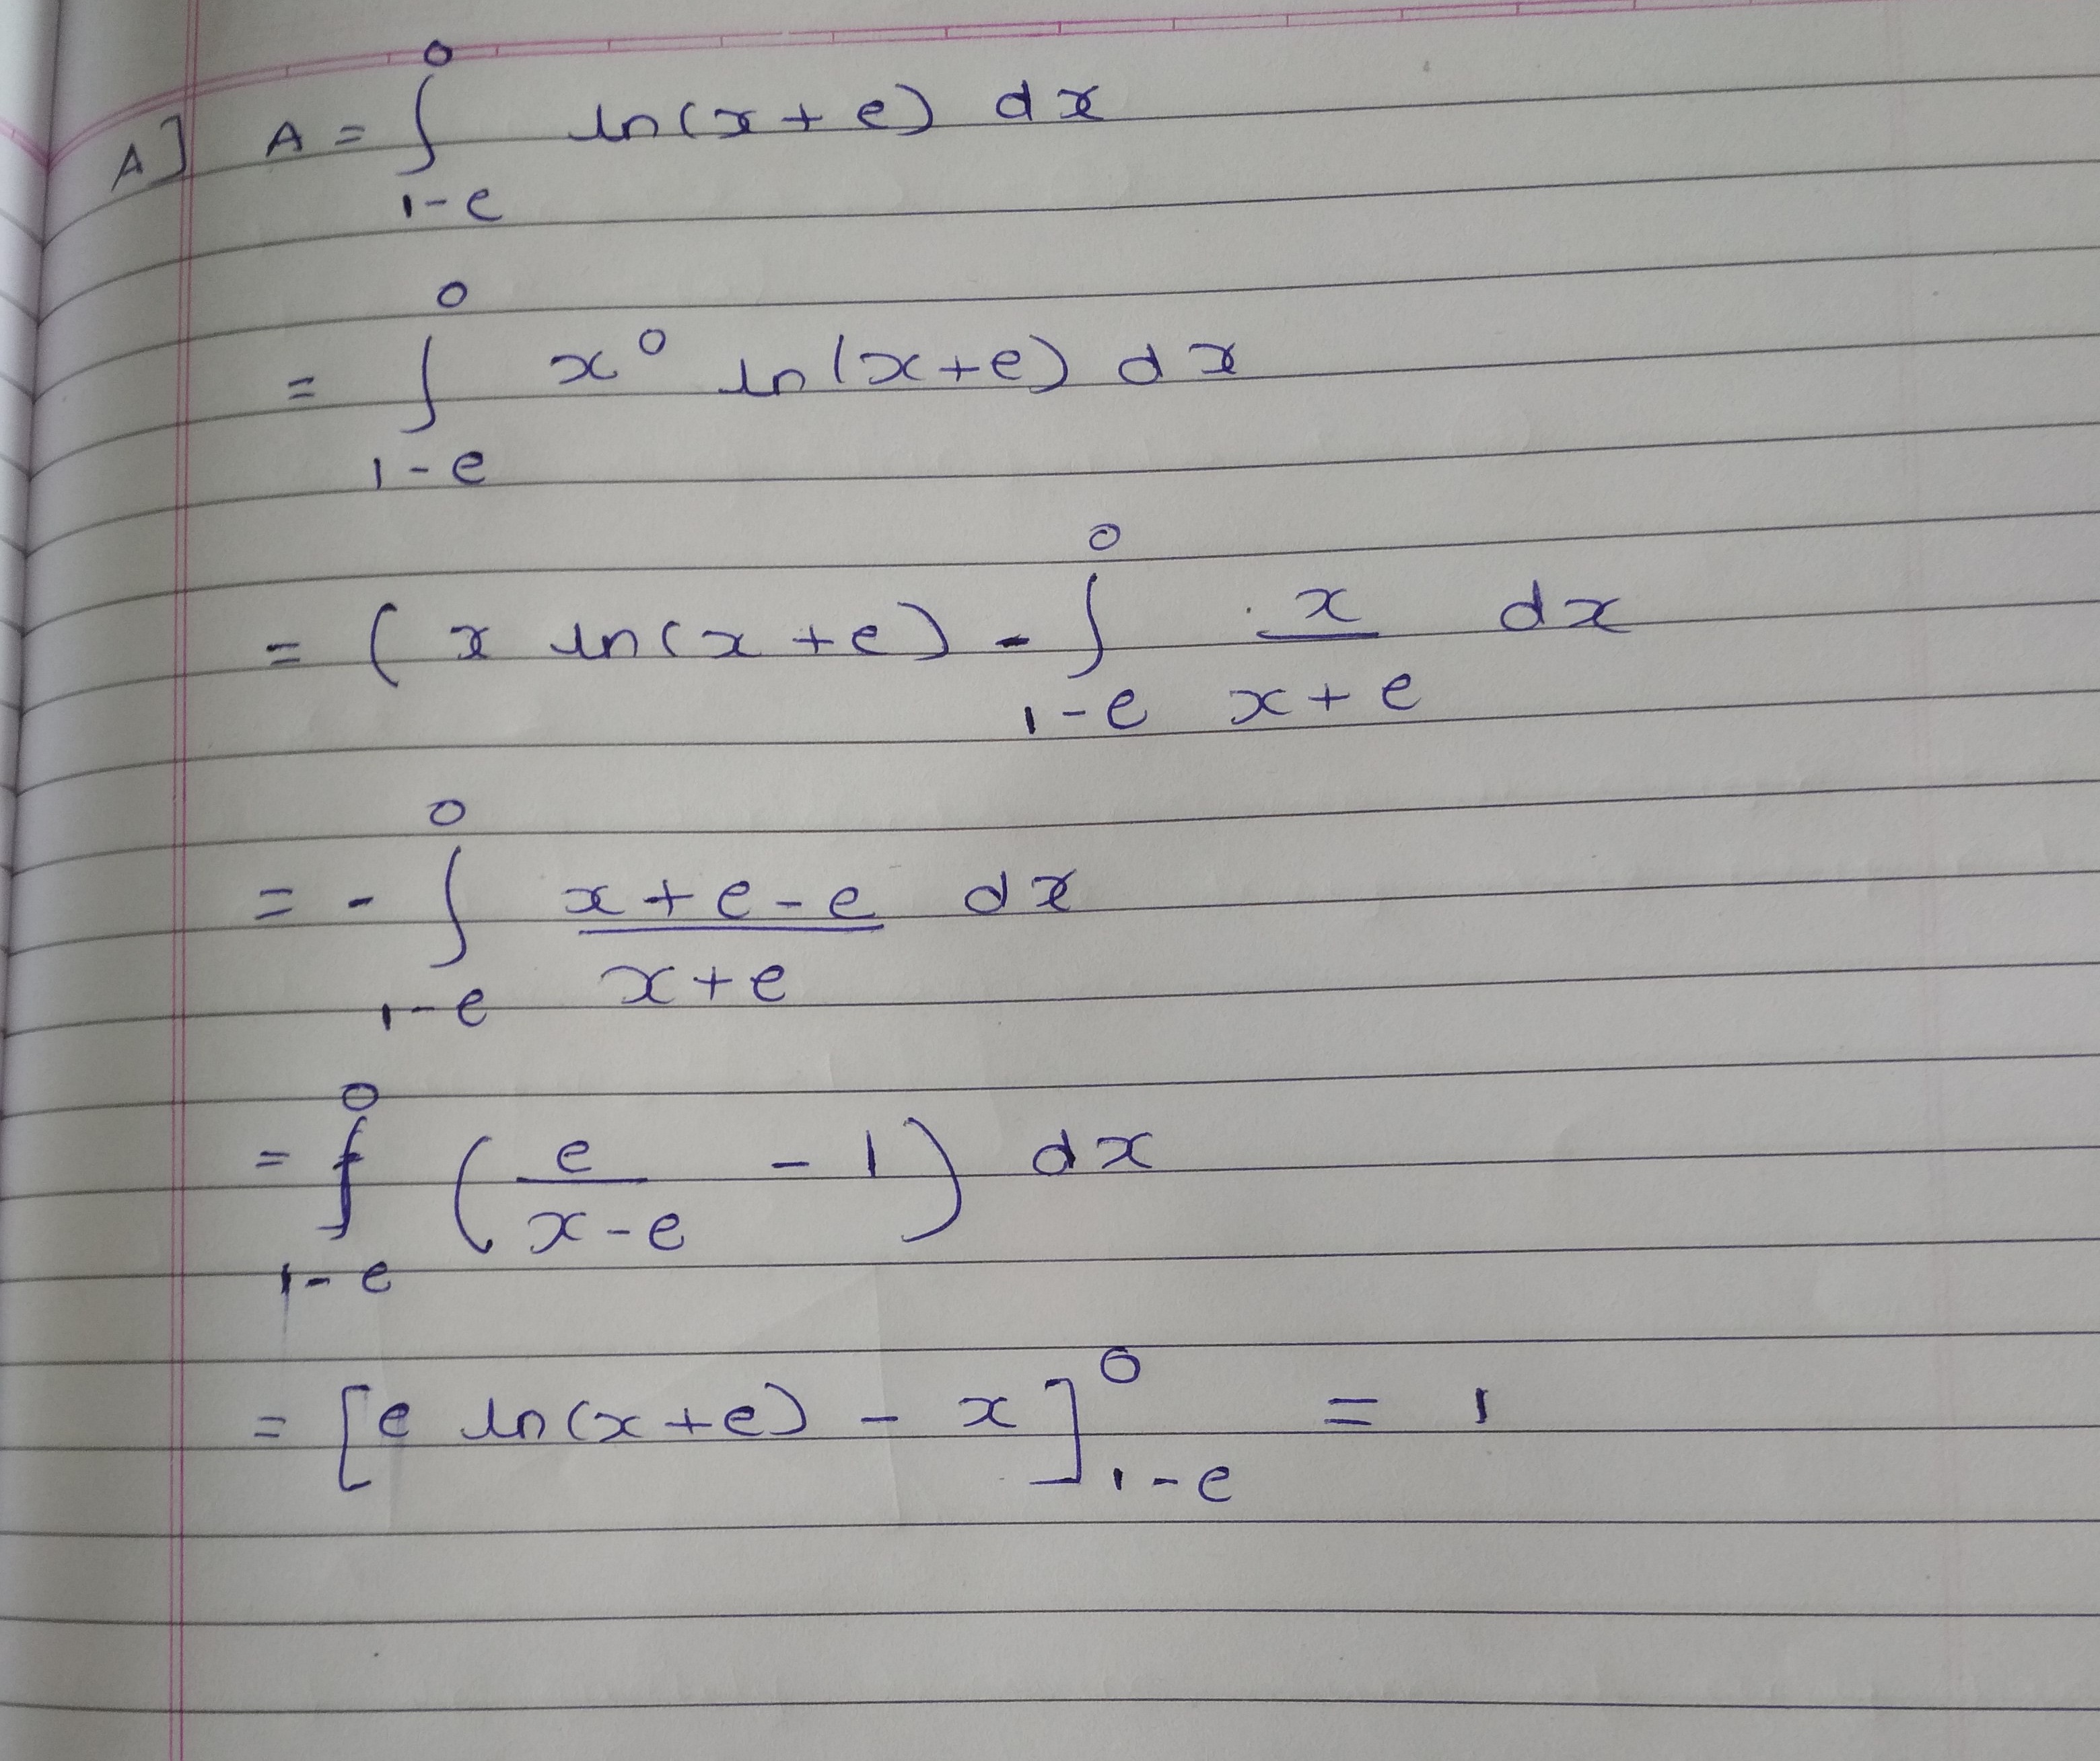 A] A = ∫_{1-e}^{0} ln(x + e) dx
= ∫_{1-e}^{0} x⁰ ln(x+e) dx
= ( x ln(x + e) - ∫_{1-e}^{0} x/(x + e) dx
= - ∫_{1-e}^{0} (x + e - e)/(x + e) dx
= ∫_{1-e}^{0} ( e/(x - e) - 1 ) dx
= [ e ln(x + e) - x ]_{1-e}^{0} = 1